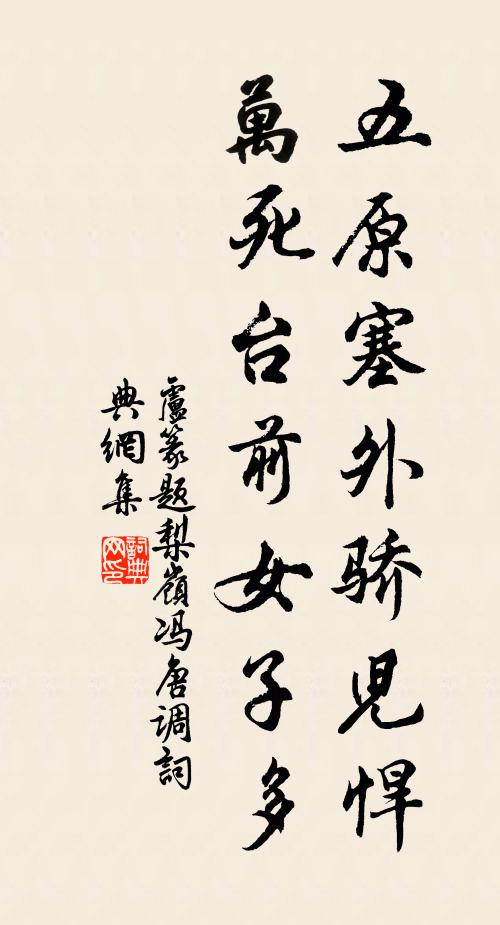 五原塞外骄児悍
萬死台前女子多
盧篆题梨嶺冯唐调詞
典網集
詞典网印